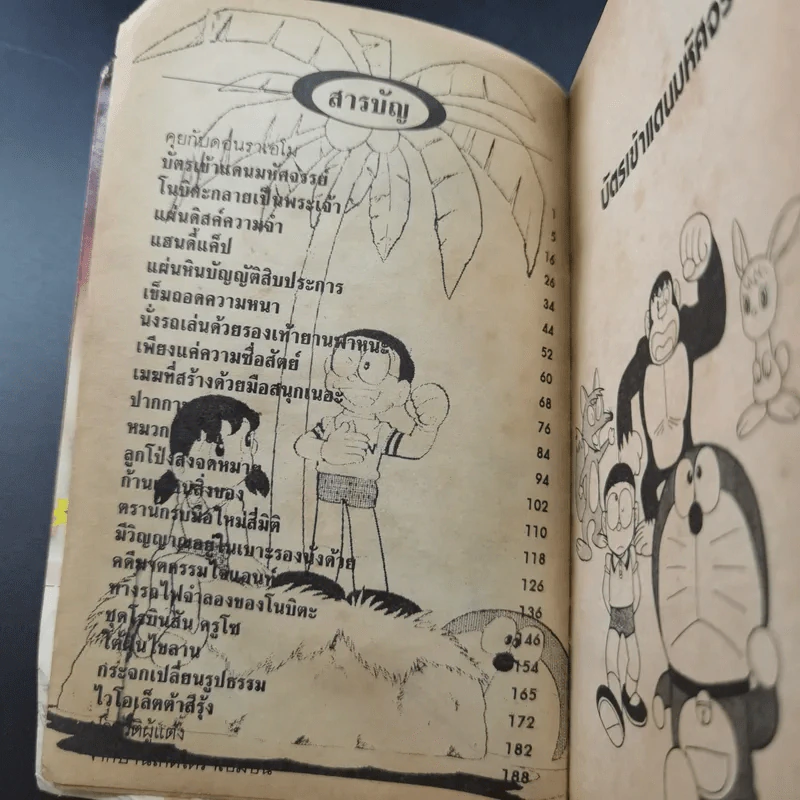 สารบัญ
คุยกับดอนราเอโม
บัตรเข้าแดนมหัศจรรย์
โนบิตะกลายเป็นพระเจ้า 1
แผ่นดิสค์ความจำ 5
แฮนดี้แค็ป 16
แผ่นหินบัญญัติสิบประการ 26
เข็มถอดความหนา 34
นั่งรถเล่นด้วยรองเท้ายานพาหนะ 44
เพียงแค่ความซื่อสัตย์ 52
เมฆที่สร้างด้วยมือสนุกเนอะ 60
68
76
ลูกโป่งส่งจดหมาย 84
94
102
มีวิญญาณอยู่ในเบาะรองนั่งด้วย 110
118
ทางรถไฟจำลองของโนบิตะ 126
ชุดโรบินสัน ครูโซ 136
ไต้ฝุ่นไขลาน 146
กระจกเปลี่ยนรูปธรรม 154
ไวโอเล็ตต้าสีรุ้ง 165
172
182
188
บัตรเข้าแดนมหัศจร